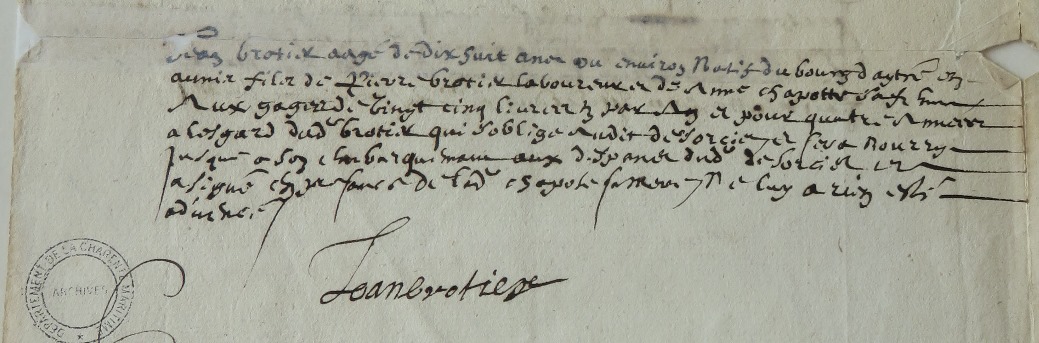 Jean brotier aagé de dix huit ans ou environ Natif du bourg daytré en
aunix filz de Pierre brotier laboureur et de Anne chapotte sa femme
Aux gages de vingt cinq livres par An et pour quatre Annees
a lesgard dud. brotier qui soblige audit desorcis et sera Nourry
Jusque a son Embarquement aux despances dud. desorcis et
a signé En presance de lad. chapote sa Mere Ne luy a rien esté
advencé
Jean brotier
DEPARTEMENT DE LA CHARENTE MARITIME
ARCHIVES